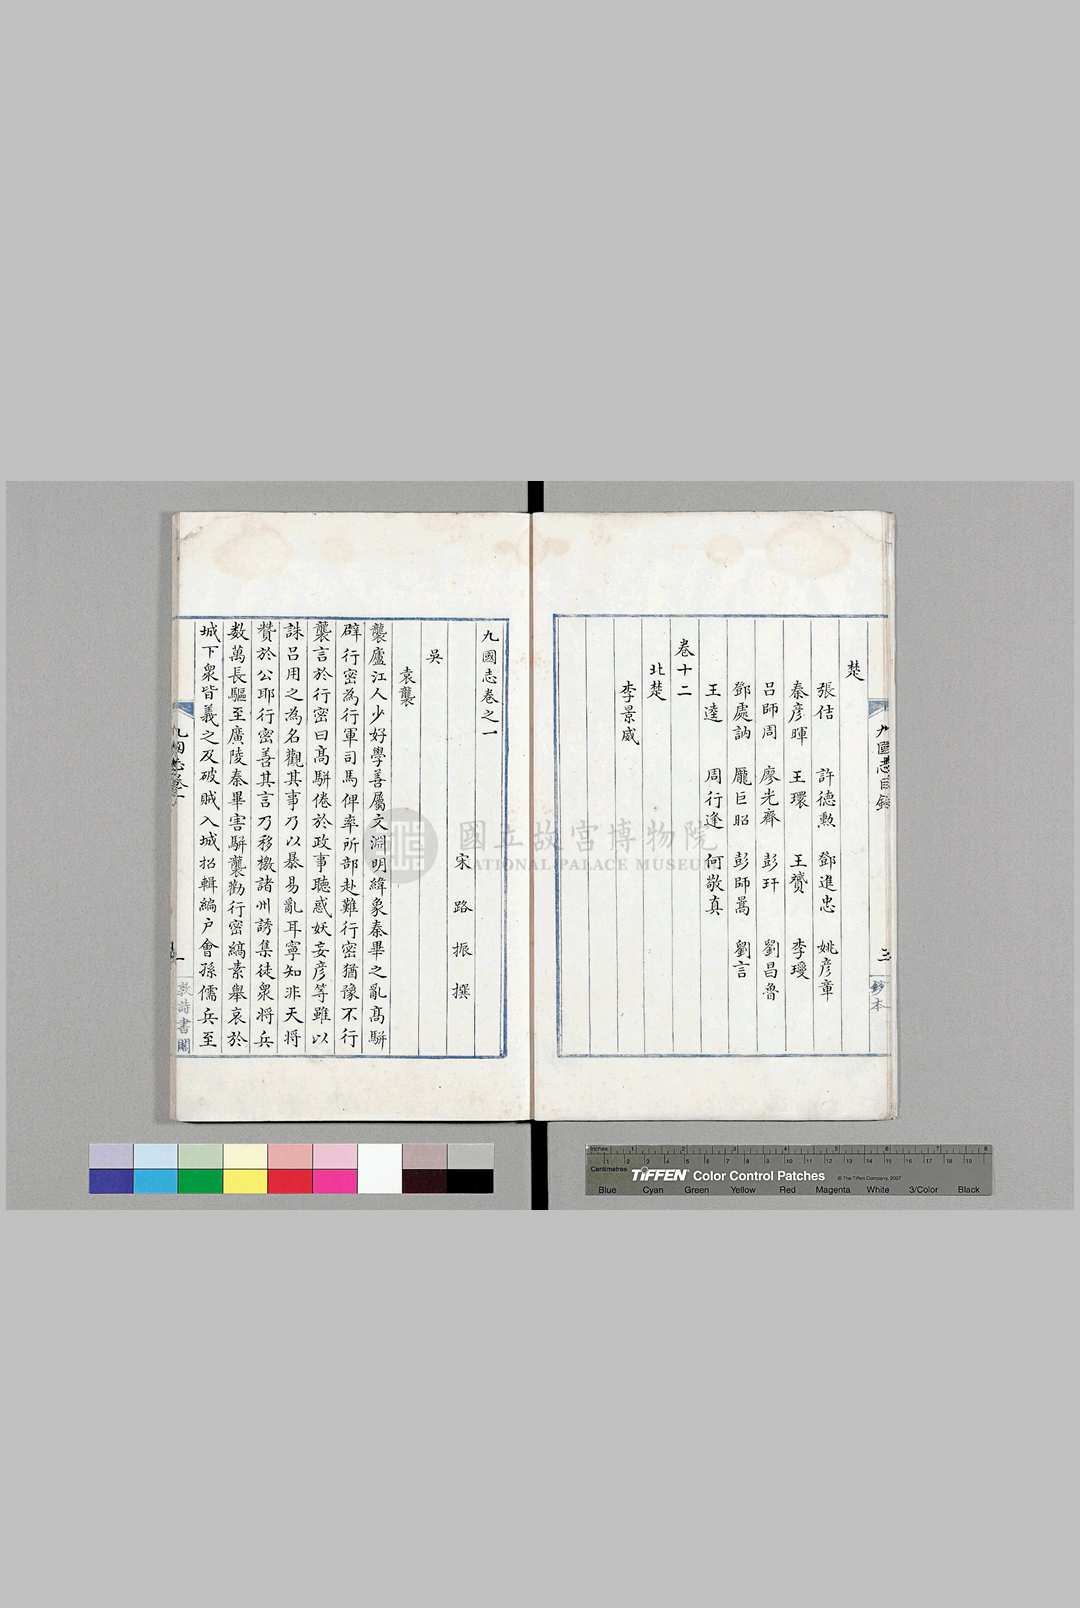 楚
張佶 許德勲 鄧進忠 姚彦章
秦彦暉 王環 王贇 李瓊
呂師周 廖光齊 彭玕 劉昌魯
鄧處訥 龐巨昭 彭師暠 劉言
王逵 周行逢 何敬真
卷十二
北楚
李景威
九國志目錄
三
鈔本
九國志卷之一
宋路振撰
吳
袁襲
襲廬江人少好學善屬文淵明緯象秦畢之亂髙駢
辟行密為行軍司馬俾率所部赴難行密猶豫不行
襲言於行密曰髙駢倦於政事聽惑妖妄彦等雖以
誅呂用之為名觀其事乃以暴易亂耳寧知非天將
贊於公耶行密善其言乃移檄諸州誘集徒衆將兵
数萬長驅至廣陵秦畢害駢襲勸行密縞素舉哀於
城下衆皆義之及破賊入城招輯編户會孫儒兵至
九國志卷一
一
敦詩書閣
國立故宮博物院
NATIONAL PALACE MUSEUM
Inches 1 2 3 4 5 6 7 8
Centimetres 1 2 3 4 5 6 7 8 9 10 11 12 13 14 15 16 17 18 19
TIFFEN Color Control Patches © The Tiffen Company, 2007
Blue Cyan Green Yellow Red Magenta White 3/Color Black